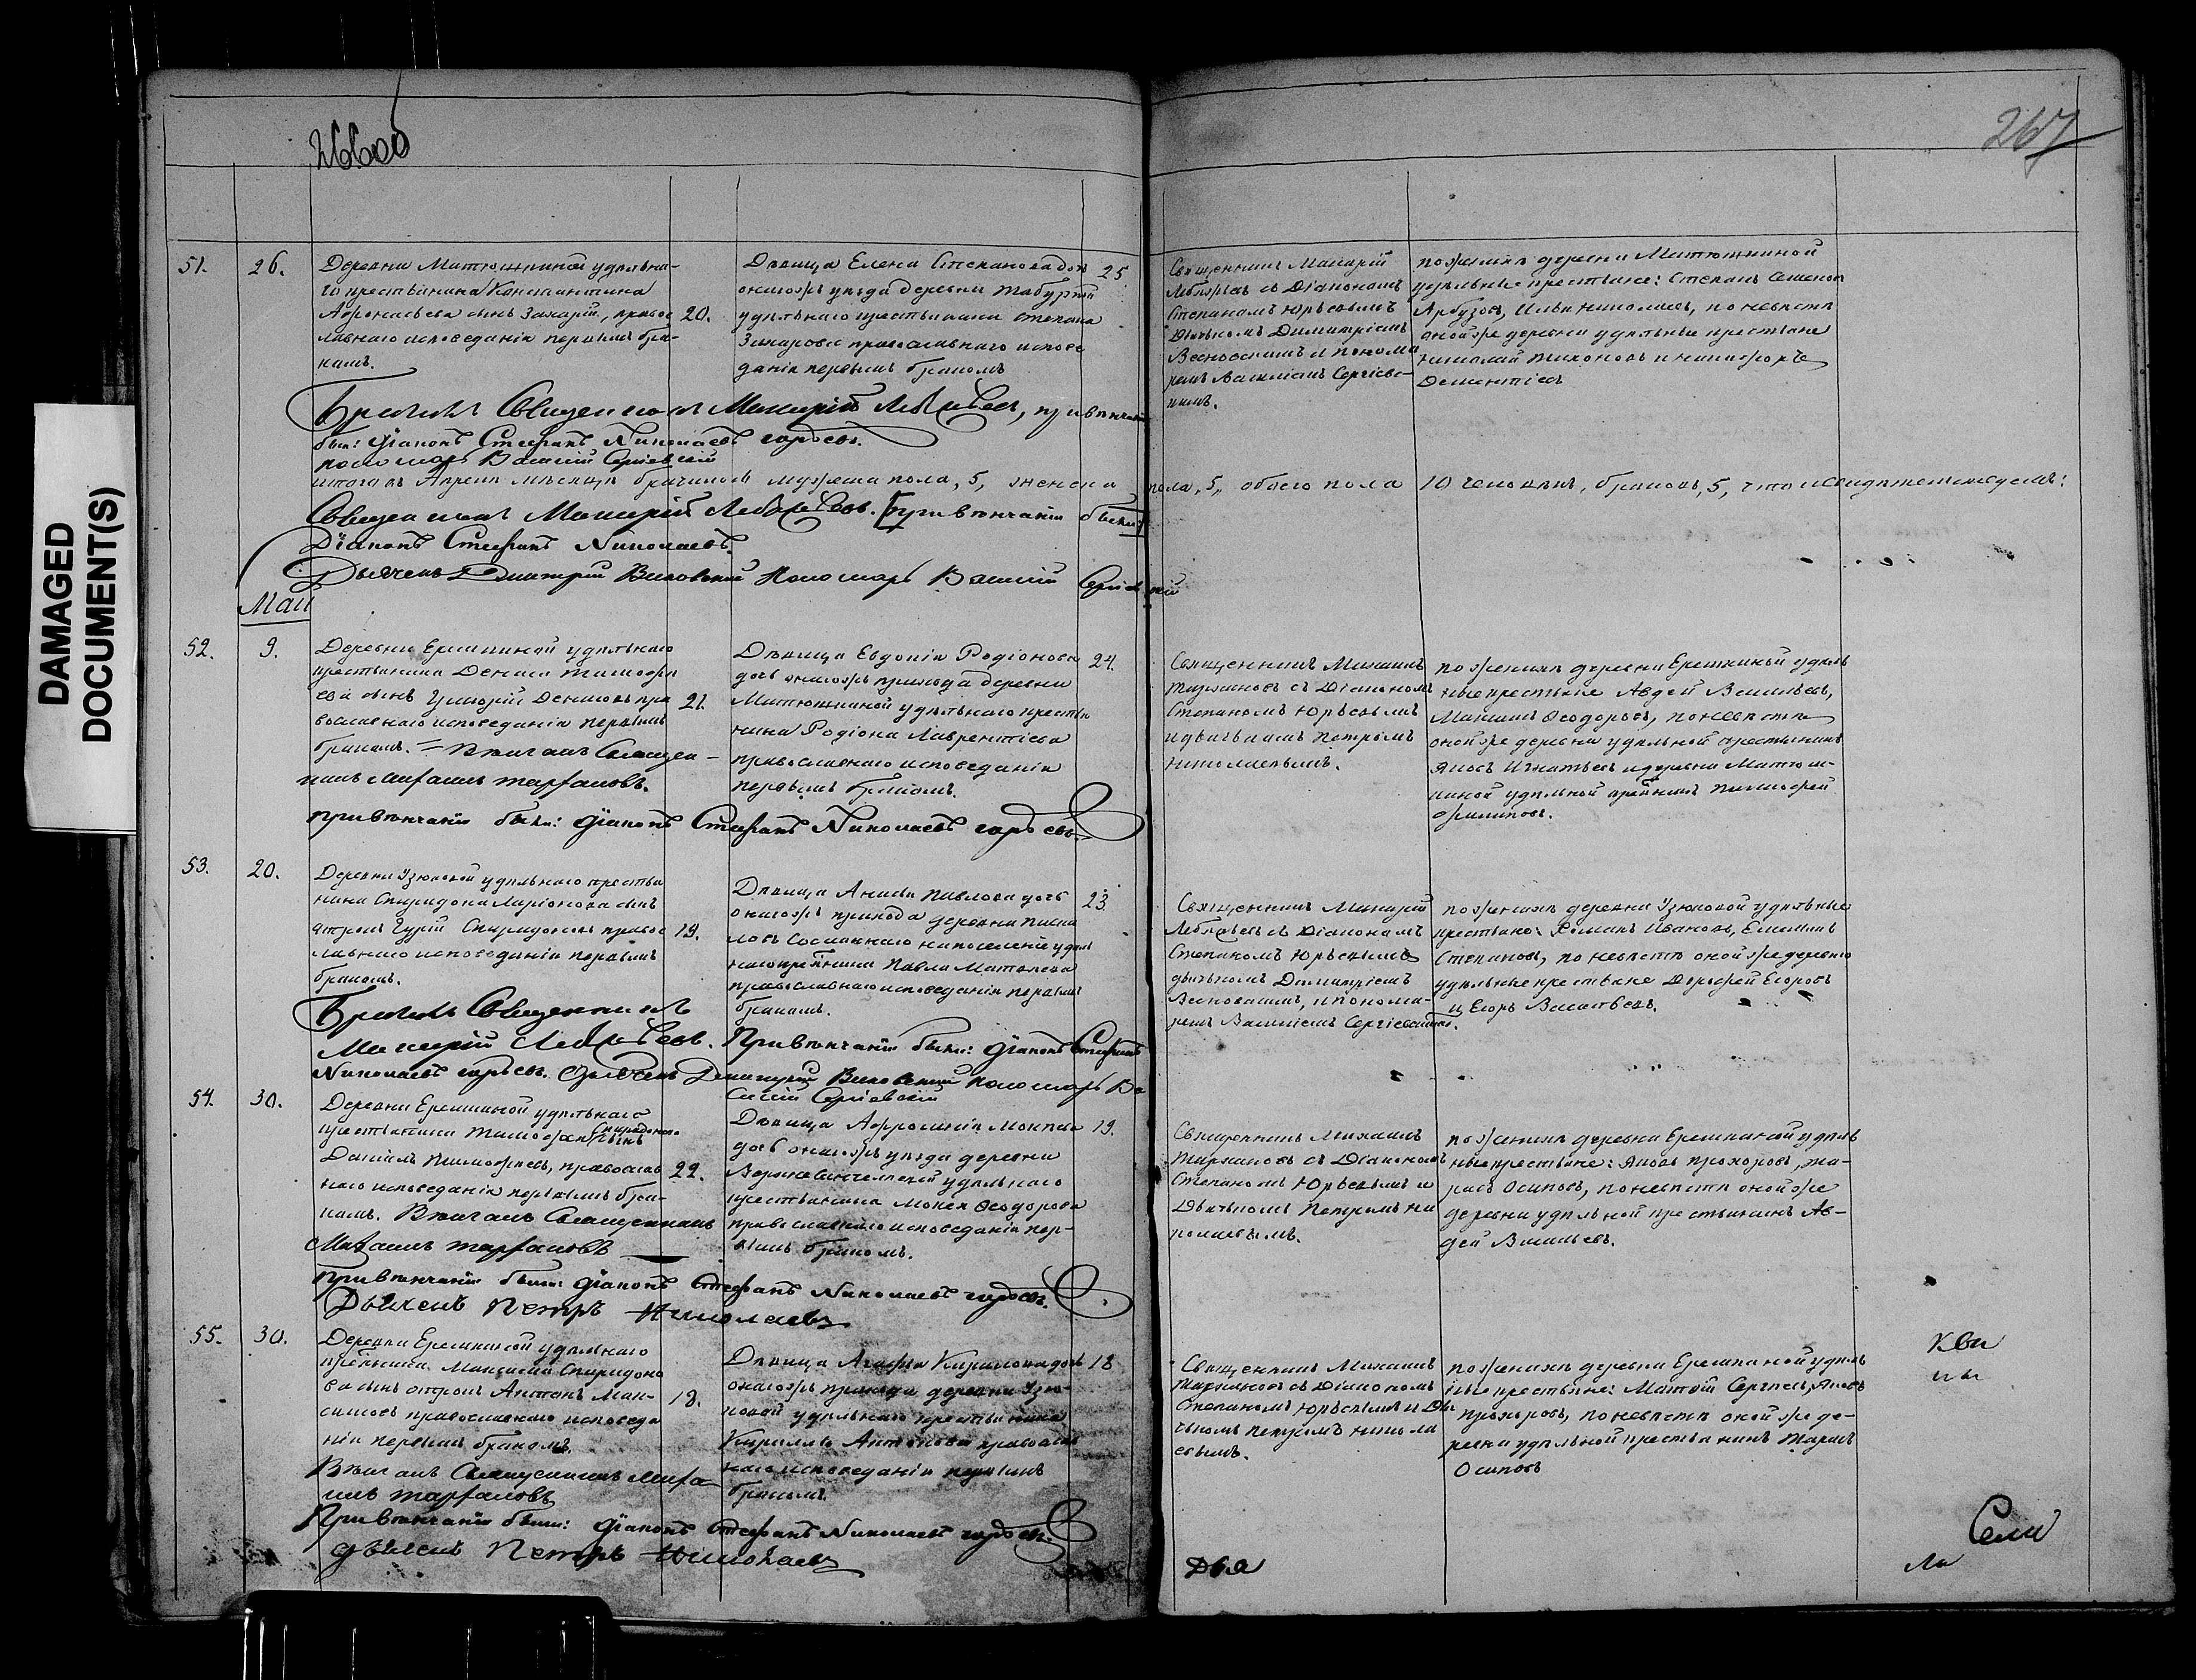 266об
267
DAMAGED
DOCUMENT(S)
51.
26.
Деревни Матюшкиной удѣльна-
го крестьянина Константина
Аѳонасьева сынъ Захарій, правос
лавнаго исповеданія первымъ бра-
комъ.
20.
Дѣвица Елена Степанова доч
онагожъ уезда деревни
удѣльнаго крестьянина Степана
Захарова православнаго испове
данія первымъ бракомъ
25
Священникъ Макарій
Лебяжьевъ съ Діакономъ
Степаномъ Юрьевымъ
Дьячкомъ Димитріемъ
и понома
ремъ Василіемъ Сергіевс-
кимъ.
по женихѣ деревни Матюшкиной
удѣльные крестьяне: Степанъ Семенов
Арбузовъ, Илья Николаевъ, по невѣстѣ
оной же деревни удѣльные крестьяне
Николай Тихоновъ и Никифоръ
Дементіевъ
Священникъ Макарій Лебяжьевъ, при вѣнчаніи
были: Діаконъ Стефанъ Николаевъ Юрьевъ.
пономарь Василій Сергіевскій
итого въ Апрелѣ мѣсяцѣ брачился мужеска пола, 5, женска
пола, 5, обоего пола 10 человѣкъ, браковъ, 5, что и свидѣтельствуемъ:
Священникъ Макарій Лебяжьевъ. При вѣнчаніи были:
Діаконъ Стефанъ Николаевъ.
Дьячекъ Дмитрій Пономарь Василій Сергіевскій
Маи
52.
9.
Деревни Ерешкиной удѣльнаго
крестьянина Дениса Тимофе
ева сынъ Григорій Денисовъ пра
вославнаго исповеданія первымъ
бракомъ. = Вѣнчалъ Священ-
никъ Михаилъ
21.
Дѣвица Евдокія Родіонова
дочь онагожъ прихода деревни
Матюшкиной удѣльнаго кресть
нина Родіона Лаврентіева
православнаго исповеданія
первымъ бракомъ.
24.
Священникъ Михаилъ
съ Діакономъ
Степаномъ Юрьевымъ
и дьячкомъ Петромъ
Николаевымъ.
по женихѣ деревни Ерешкиной удѣль
ные крестьяне Авдей Васильевъ,
Максимъ Ѳеодоровъ, по невѣстѣ
оной же деревни удѣльной крестьянинъ
Яковъ Игнатьевъ и деревни Матюш-
киной удѣльной Тимофей
Филиповъ.
при вѣнчаніи были: Діаконъ Стефанъ Николаевъ Юрьевъ.
53.
20.
Деревни Узюковой удѣльнаго крестья
нина Спиридона Ларіонова сынъ
отрокъ Гурій Спиридоновъ правос
лавнаго исповеданія первымъ
бракомъ.
19.
Дѣвица Анисья Павлова дочь
онагожъ прихода деревни
удѣл
Павла
православнаго исповеданія первымъ
бракомъ.
23.
Священникъ Макарій
Лебяжьевъ съ Діакономъ
Степаномъ Юрьевымъ
дьячкомъ Димитріемъ
и понома-
ремъ Василіемъ Сергіевскимъ.
по женихѣ деревни Узюковой удѣльные
крестьяне: Романъ Ивановъ, Емельянъ
Степановъ, по невѣстѣ оной же деревни
удѣльные крестьяне Дорофей Егоровъ
и Егоръ Васильевъ.
Священникъ
Макарій Лебяжьевъ. При вѣнчаніи были: Діаконъ Стефанъ
Николаевъ Юрьевъ. Дьячекъ Димитрій Пономарь Ва
силій Сергіевскій
54.
30.
Деревни Ерешкиной удѣльнаго
крестьянина Тимофея Спиридонова сынъ
Даніилъ Тимофеевъ, православ
наго исповеданія первымъ бра-
комъ. Вѣнчалъ Священникъ
Михаилъ
22.
Дѣвица
дочь онагожъ уезда деревни
удѣльнаго
крестьянина Мокея Ѳеодорова
православнаго исповеданія пер-
вымъ бракомъ.
19.
Священникъ Михаилъ
съ Діакономъ
Степаномъ Юрьевымъ и
Дьячкомъ Петромъ Ни
колаевымъ.
по женихѣ деревни Ерешкиной удѣль
ные крестьяне: Яковъ Прохоровъ, Та-
расъ Осиповъ, по невѣстѣ оной же
деревни удѣльной крестьянинъ Ав-
дей Васильевъ.
При вѣнчаніи были: Діаконъ Стефанъ Николаевъ Юрьевъ.
Дьячекъ Петръ Николаевъ
55.
30.
Деревни Ерешкиной удѣльнаго
Максима Спиридоно
ва сынъ отрокъ Антонъ Мак-
симовъ православнаго исповеда
нія первымъ бракомъ.
Вѣнчалъ Священникъ Миха
илъ
18.
Дѣвица Агафья Кирилова дочь
онагожъ прихода деревни Узю-
ковой удѣльнаго крестьянина
Кирилла Антонова православ
наго исповеданія первымъ
бракомъ.
18
Священникъ Михаилъ
съ Діакономъ
Степаномъ Юрьевымъ и Дья
чкомъ Петромъ Никола
евымъ.
по женихѣ деревни Ерешкиной удѣль
ные крестьяне: Матвей Сергеевъ, Яковъ
Прохоровъ, по невѣстѣ оной же де-
ревни удѣльной крестьянинъ Тарасъ
Осиповъ
При вѣнчаніи были: Діаконъ Стефанъ Николаевъ Юрьевъ.
Дьячекъ Петръ Николаевъ
Дья